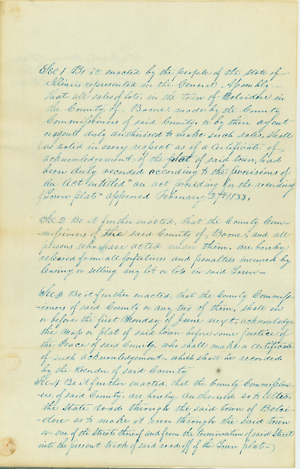 Sec 1 Be it enacted by the people of the state of
Illinois represented in the General Assembly
that all sales of lots in the town of Belvidere in
the County of Boone made by the County
Commissioners of said County, or by their agent
or agents duly authorised to make such sales, shall
be valid in every respect as if a certificate of
acknowledgement of the plat of said town had
been duly recorded according to the provisions of
an Act entitled "an act providing for the recording
Town plats" approved February 27th 1833.
Sec 2 Be it further enacted, that the County Com-
missioners of the said County of Boone, and all
persons who have acted under them, are hereby
released from all forfeitures and penalties incured by
leasing or selling any lot or lots in said Town—
Sec 3 Be it further enacted, that the County Commiss-
-ioners of said County or any two of them, shall on
or before the first Monday of June next, acknowledge
the map or plat of said town before some justice of
the Peace of said County, who shall make a certificate
of such acknowledgement which shall be recorded
by the Recorder of said County
Sec 4 Be it further enacted, that the County Commission-
ers, of said County, are hereby authorised to alter
the State road through the said town of Belvi-
dere so as to make it run through the said Town
on one of the Streets thereof and from the termination of said Street
into the present track of said road off of the Town plat—